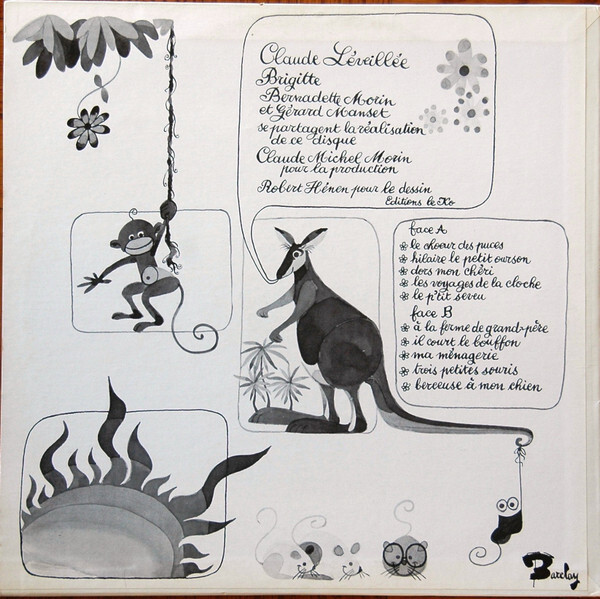 Claude Léveillée
Brigitte
Bernadette Morin
et Gérard Manset
se partagent la réalisation
de ce disque
Claude Michel Morin
pour la production
Robert Hénen pour le dessin
Editions le Ko
face A
le choeur des puces
hilaire le petit ourson
dors mon chéri
les voyages de la cloche
le p'tit sereu
face B
à la ferme de grand-père
il court le bouffon
ma ménagerie
trois petites souris
berceuse à mon chien
Barclay